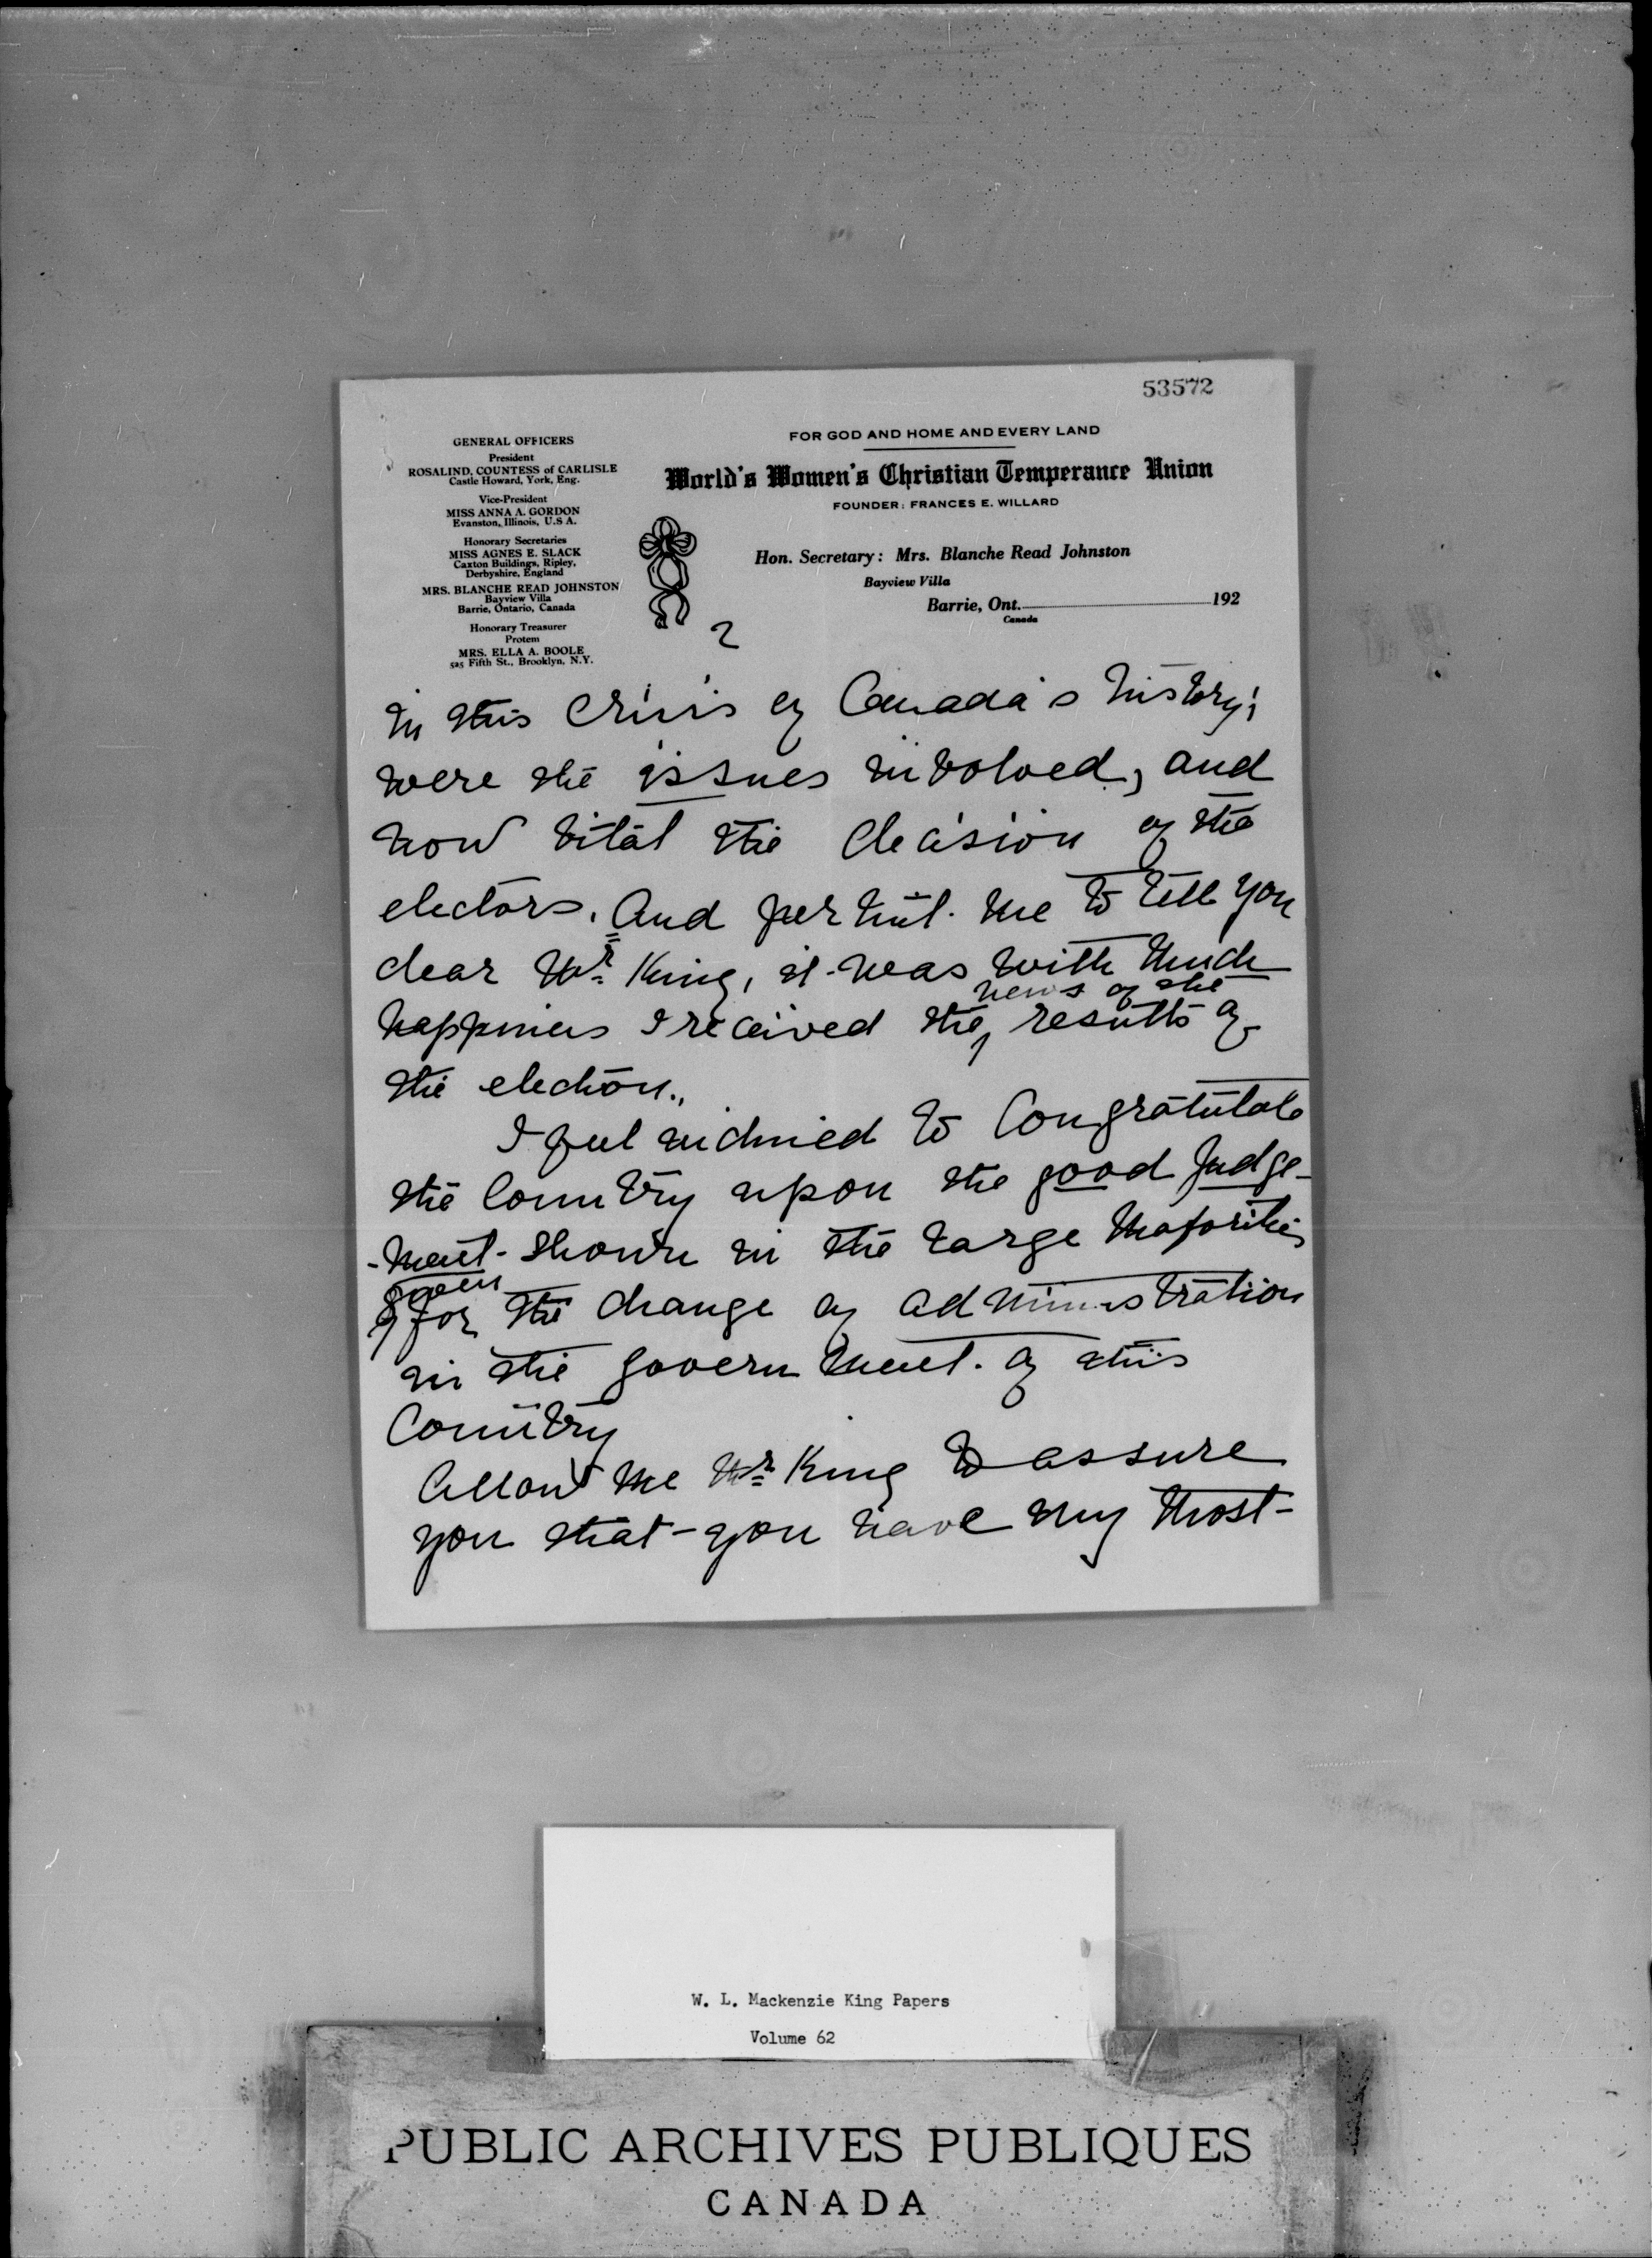 53572
GENERAL OFFICERS
President
ROSALIND, COUNTESS of CARLISLE
Castle Howard, York, Eng.
Vice-President
MISS ANNA A. GORDON
Evanston, Illinois, U.S A.
Honorary Secretaries
MISS AGNES E. SLACK
Caxton Buildings, Ripley,
Derbyshire, England
MRS. BLANCHE READ JOHNSTON
Bayview Villa
Barrie, Ontario, Canada
Honorary Treasurer
Protem
MRS. ELLA A. BOOLE
525 Fifth St., Brooklyn, N.Y.
FOR GOD AND HOME AND EVERY LAND
World's Women's Christian Temperance Union
FOUNDER: FRANCES E. WILLARD
Hon. Secretary: Mrs. Blanche Read Johnston
Bayview Villa
Barrie, Ont. 192
Canada
2
in this Crisis of Canada's history;
were the issues involved, and
how vital the decision of the
electors. And permit me to tell you
dear Mr King, it was with much
news of the
happiness I received the results of
the election.
I feel inclined to Congratulate
the Country upon the good judge-
-ment shown in the large majorities
given
for the change of administration
in the government of this
Country
Allow me Mr King to assure
you that you have my most
W. L. Mackenzie King Papers
Volume 62
PUBLIC ARCHIVES PUBLIQUES
CANADA